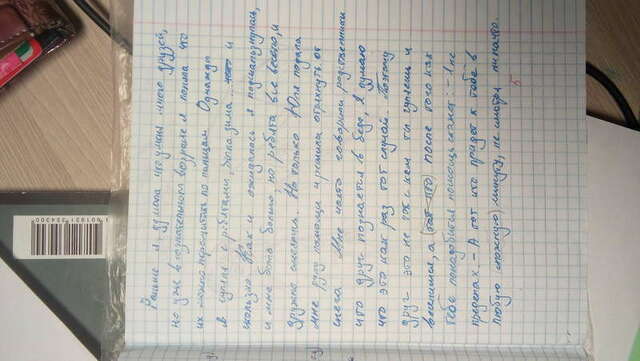 Раньше я думала что у меня много друзей,
но уже в сознательном возрасте я поняла что
их можно пересчитать по пальцам Однажды
я гуляла с ребятами, была зима и
скользко Как и ожидалось я подскользнулась,
и мне было больно, но ребята все весело, и
дружно смеялись. Но только Юля подала
мне руку помощи и решила отряхнуть от
снега Мне часто говорили родственники
что друг познается в беде, я думаю
что это как раз тот случай. Поэтому
друг это не тот с кем ты гуляешь и
веселишся, а (тот кто) после того как
тебе понадобится помощь скажет: - Я не
пределах. - А тот кто придет к тебе в
любую сложную минуту, не смотря ни на что.
5